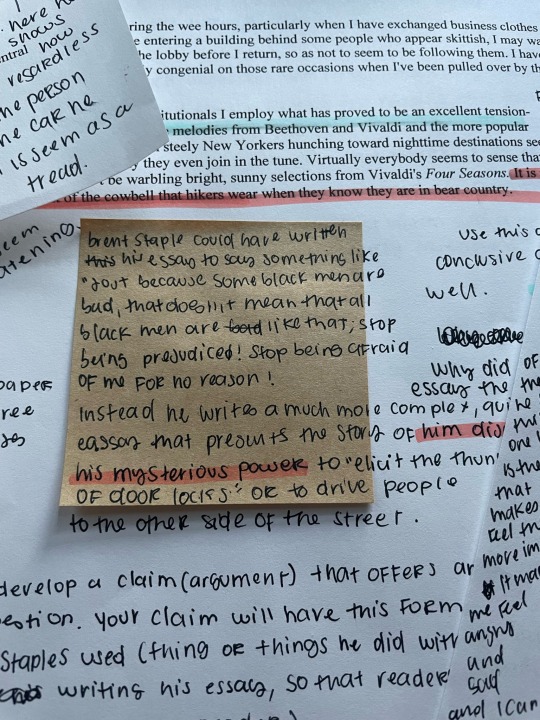 here
shows
ntral how
regardless
he person
he car he
is seem as a
tread.
ring the wee hours, particularly when I have exchanged business clothes
entering a building behind some people who appear skittish, I may wa
the lobby before I return, so as not to seem to be following them. I have
y congenial on those rare occasions when I've been pulled over by th
itutionals I employ what has proved to be an excellent tension-
melodies from Beethoven and Vivaldi and the more popular
steely New Yorkers hunching toward nighttime destinations see
they even join in the tune. Virtually everybody seems to sense tha
be warbling bright, sunny selections from Vivaldi's Four Seasons. It is
of the cowbell that hikers wear when they know they are in bear country.
eem
atening
brent Staple could have written
this his essay to say something like
"Just because some black men are
bad, that doesn't mean that all
black men are bad like that, stop
being prejudiced! Stop being afraid
OF me FOR no reason!
Instead he writes a much more complex, qui
eassay that presunts the story of him dis
his mysterious power to "elicit the thun
OF door locks" or to drive people
to the other side of the street.
use this
conclusive
well.
why did
essay the
paper
ree
OF
the
he
one
is the
that
makes
feel
more im
it ma
me feel
angry
and
sad
and I can
develop a claim (argument) that OFFERS an
estion. your claim will have this FORM
Staples used (thing or things he did with
writing his essay, so that reader